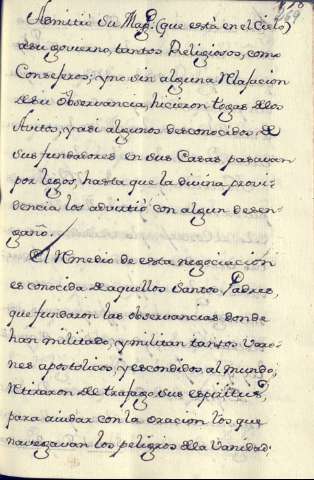 Admitió Su Magᵈ. (que está en el Cielo)
a su govierno, tantos Religiosos, como
Consejeros; y no sin alguna relajacion
de su observancia, hicieron togas de los
Avitos, y asi algunos desconocidos, de
sus fundadores en sus Casas, pasavan
por legos, hasta que la divina provi-
dencia los advirtió con algun desen-
gaño.
El remedio de esta negociacion
es conocida de aquellos Santos Padres,
que fundaron las observancias donde
han militado, y militan tantos Varo-
nes apostolicos, y escondidos al mundo;
retiraron del trafago sus espiritus,
para aiudar con la oracion los que
navegavan los peligros de la Vanidad: